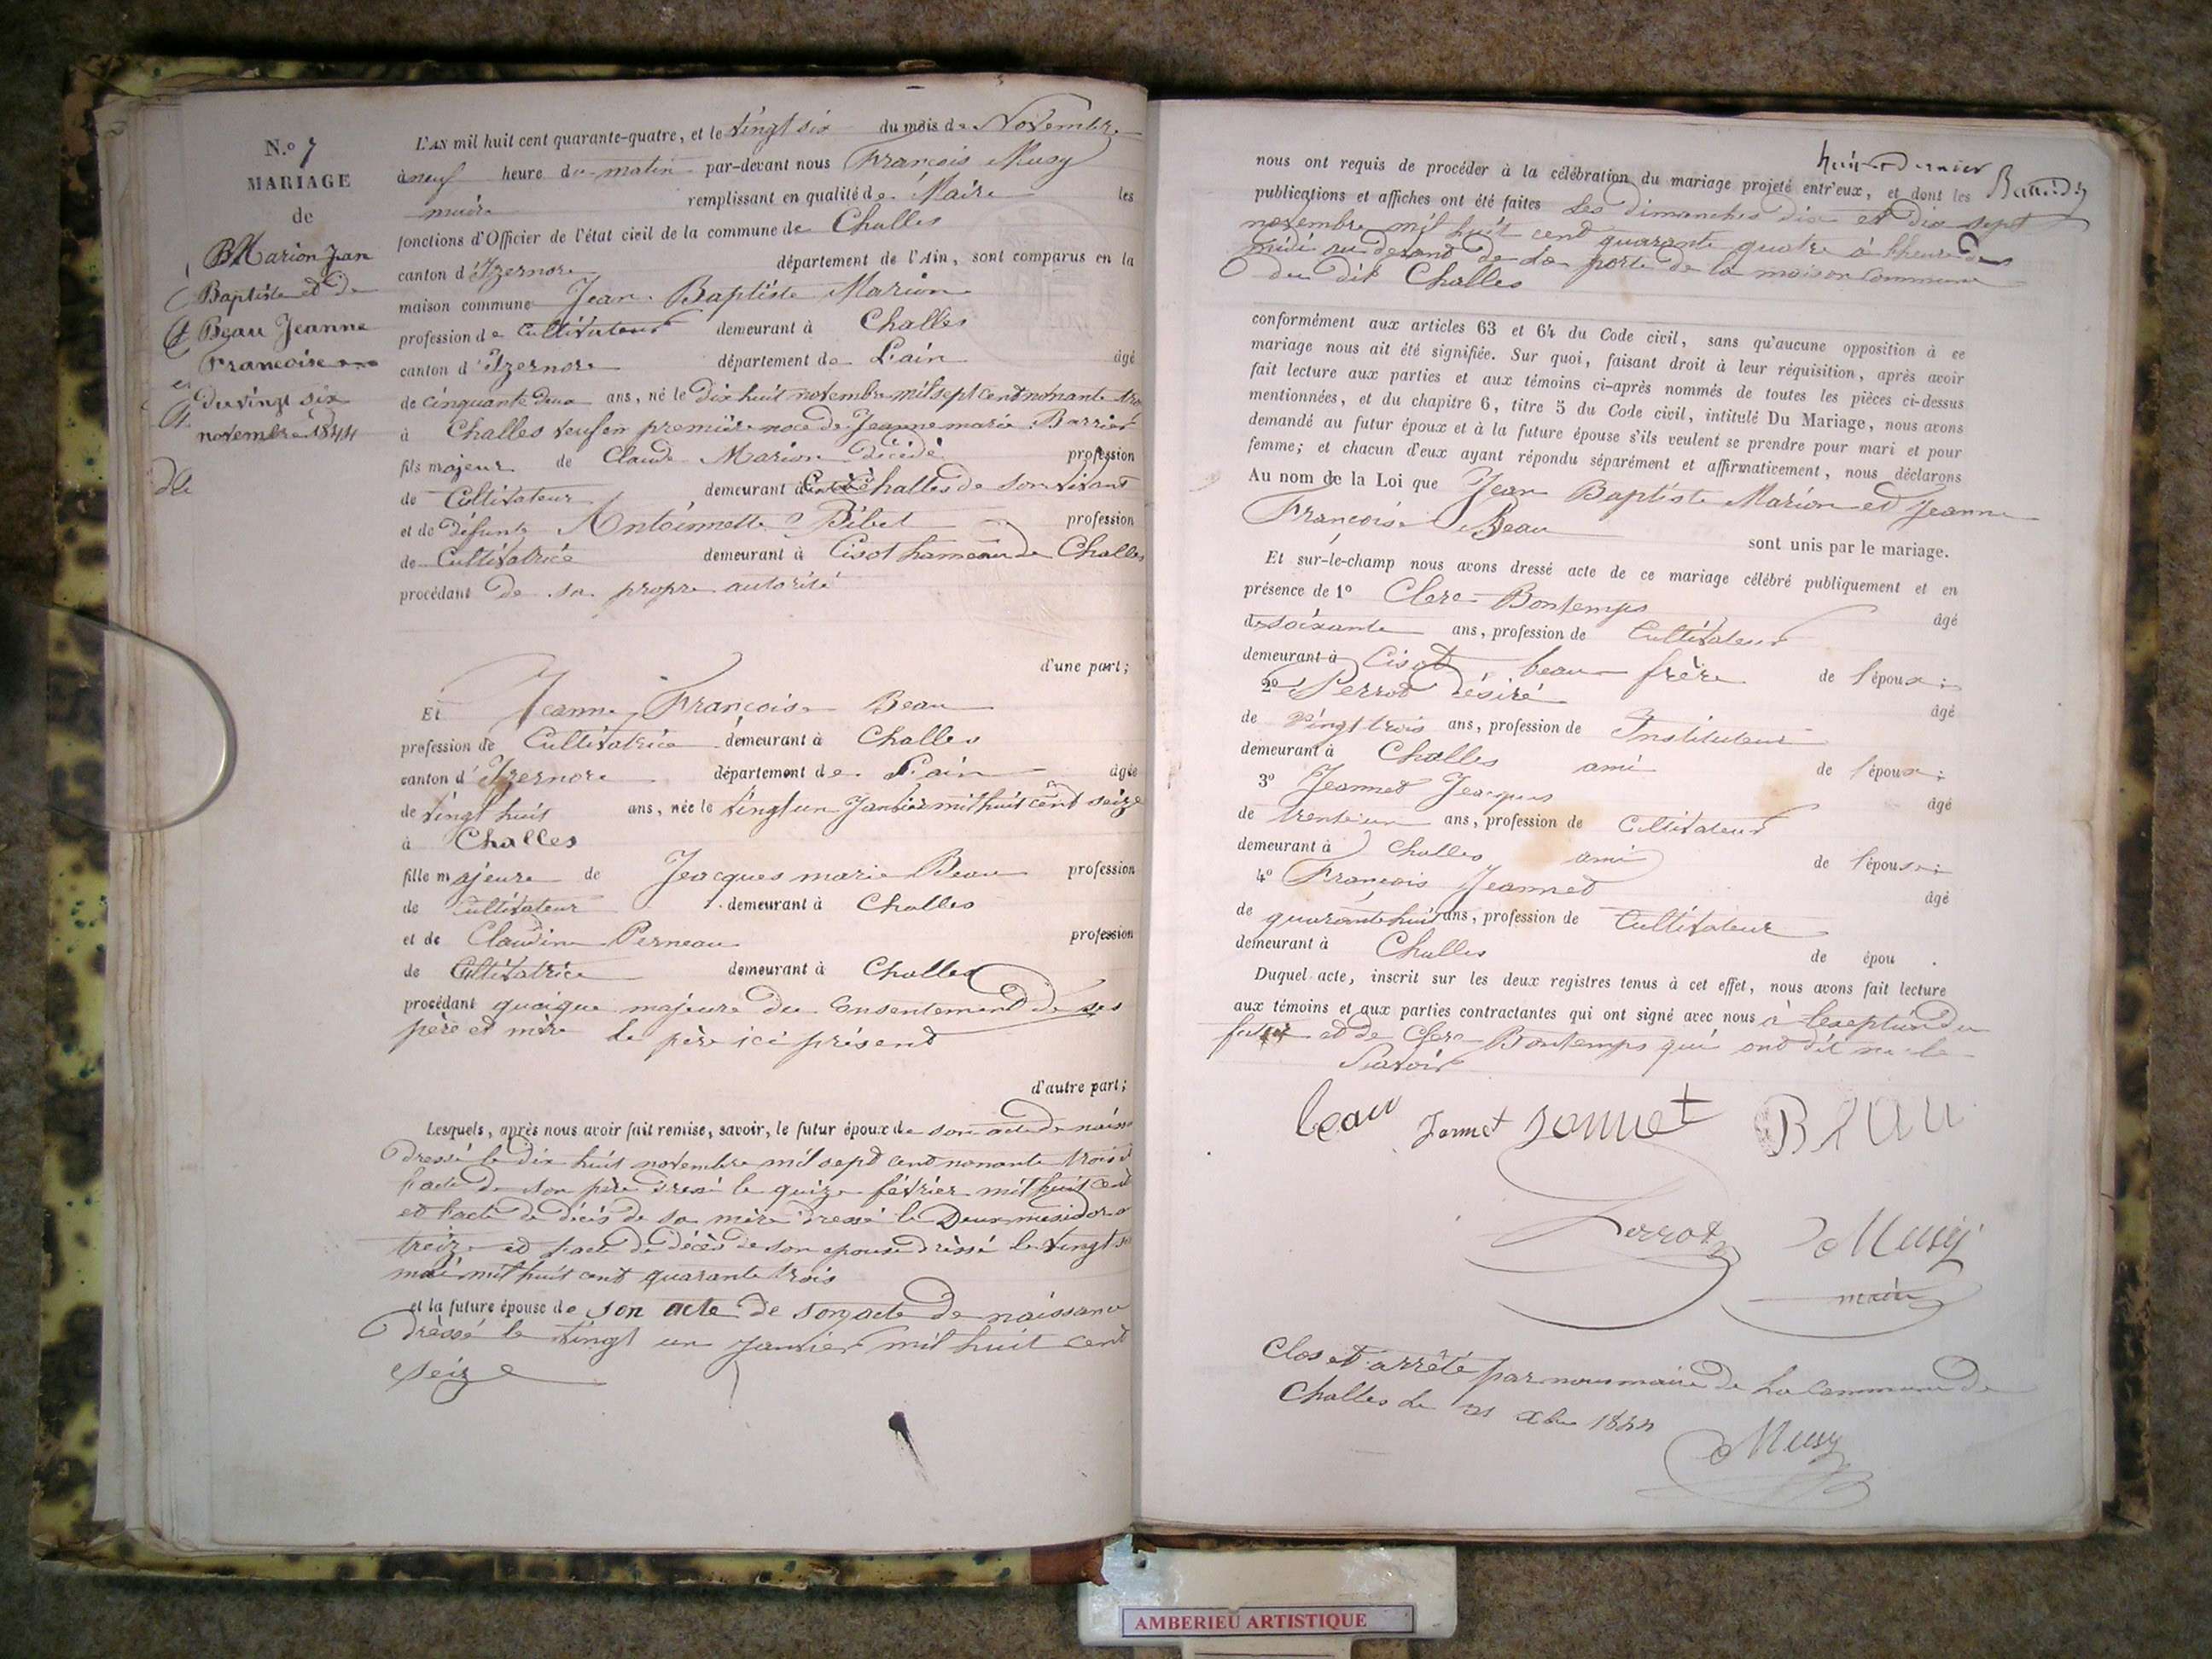 N.º 7
MARIAGE
de
Marion Jean
Baptiste et de
Beau Jeanne
Francoise
du vingt six
novembre 1844
L'AN mil huit cent quarante-quatre, et le vingt six du mois de Novembre
à neuf heure du matin par-devant nous François Musy
maire remplissant en qualité de Maire les
fonctions d'Officier de l'état civil de la commune de Challes
canton d'Izernore département de l'Ain, sont comparus en la
maison commune Jean Baptiste Marion
profession de Cultivateur demeurant à Challes
canton d'Izernore département de L'ain âgé
de cinquante deux ans, né le dix huit novembre mil sept cent nonante trois
à Challes veuf en première noce de Jeanne marie Barrier
fils majeur de Claude Marion décédé profession
de Cultivateur demeurant à Challes de son vivant
et de défunte Antoinnette Bibet profession
de Cultivatrice demeurant à Cisot hameau de Challes
procédant de sa propre autorité
d'une part;
Et Jeanne Françoise Beau
profession de Cultivatrice demeurant à Challes
canton d'Izernore département de L'ain âgée
de vingt huit ans, née le vingt un Janvier mil huit cent seize
à Challes
fille majeure de Jeacques marie Beau profession
de cultivateur demeurant à Challes
et de Claudine Perneau profession
de Cultivatrice demeurant à Challes
procédant quoique majeure du consentement de ses
père et mère le père ici présent
d'autre part;
Lesquels, après nous avoir fait remise, savoir, le futur époux de son acte de naiss
dressé le dix huit novembre mil sept cent nonante trois et
l'acte de son père dressé le quize février mil huit cent
et l'acte de décès de sa mère dressé le Deux mesidor
treize et l'acte de décès de son epouse dréssé le vingt
mai mil huit cent quarante trois
et la future épouse de son acte de son acte de naissance
dréssé le vingt un janvier mil huit cent
seize
nous ont requis de procéder à la célébration du mariage projeté entr'eux, et dont les
publications et affiches ont été faites les dimanches dix et dix sept
novembre mil huit cent quarante quatre à l'heure de
midi au devant de la porte de la maison commune
du dit Challes
conformément aux articles 63 et 64 du Code civil, sans qu'aucune opposition à ce
mariage nous ait été signifiée. Sur quoi, faisant droit à leur réquisition, après avoir
fait lecture aux parties et aux témoins ci-après nommés de toutes les pièces ci-dessus
mentionnées, et du chapitre 6, titre 5 du Code civil, intitulé Du Mariage, nous avons
demandé au futur époux et à la future épouse s'ils veulent se prendre pour mari et pour
femme; et chacun d'eux ayant répondu séparément et affirmativement, nous déclarons
Au nom de la Loi que Jean Baptiste Marion et Jeanne
Françoise Beau sont unis par le mariage.
Et sur-le-champ nous avons dressé acte de ce mariage célébré publiquement et en
présence de 1º Clerc Bontemps âgé
de soixante ans, profession de Cultivateur
demeurant à Cisot beau frère de l'époux;
2º Perrot désiré âgé
de vingt trois ans, profession de Instituteur
demeurant à Challes ami de l'époux;
3º Jeannet Jeacques âgé
de trente un ans, profession de Cultivateur
demeurant à Challes ami de l'épouse;
4º François Jeannet âgé
de quarante huit ans, profession de Cultivateur
demeurant à Challes de épou .
Duquel acte, inscrit sur les deux registres tenus à cet effet, nous avons fait lecture
aux témoins et aux parties contractantes qui ont signé avec nous à l'exeption du
futur et de Clerc Bontemps qui ont dit ne le
Savoir
beau Jannet Jannet BEAU
Perrot Musy
maire
Clos et arrêté par nous maire de la Commune de
Challes le 31 Xbre 1844
Musy
AMBERIEU ARTISTIQUE